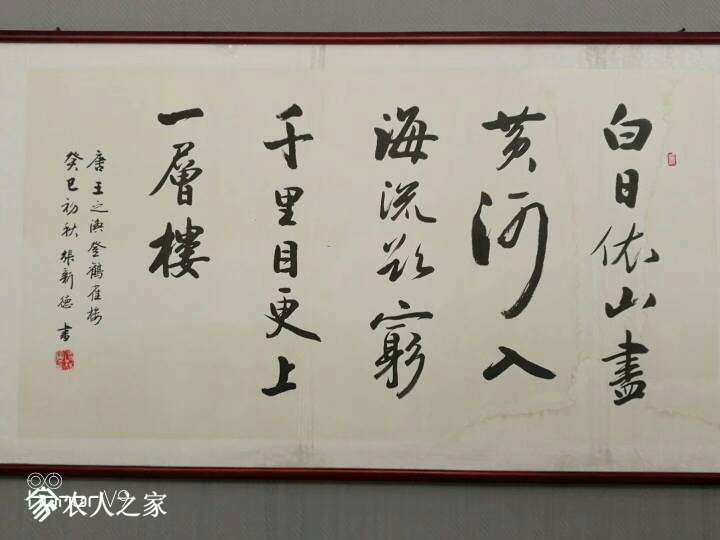 白日依山盡
黄河入
海流欲窮
千里目更上
一層樓
唐王之渙登鶴雀樓
癸巳初秋張新德書
農人之家